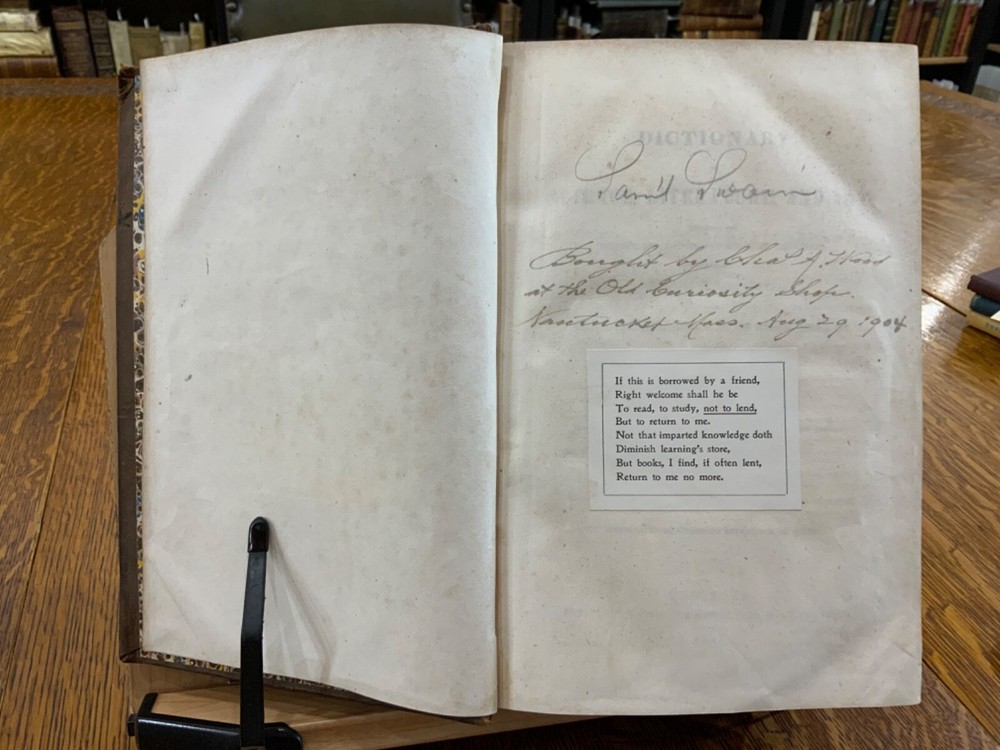 DICTIONARY
Sam'l Swain
Bought by Chas A.
at the Old Curiosity Shop.
Nantucket Mass. Aug 29 1904
If this is borrowed by a friend,
Right welcome shall he be
To read, to study, not to lend,
But to return to me.
Not that imparted knowledge doth
Diminish learning's store,
But books, I find, if often lent,
Return to me no more.